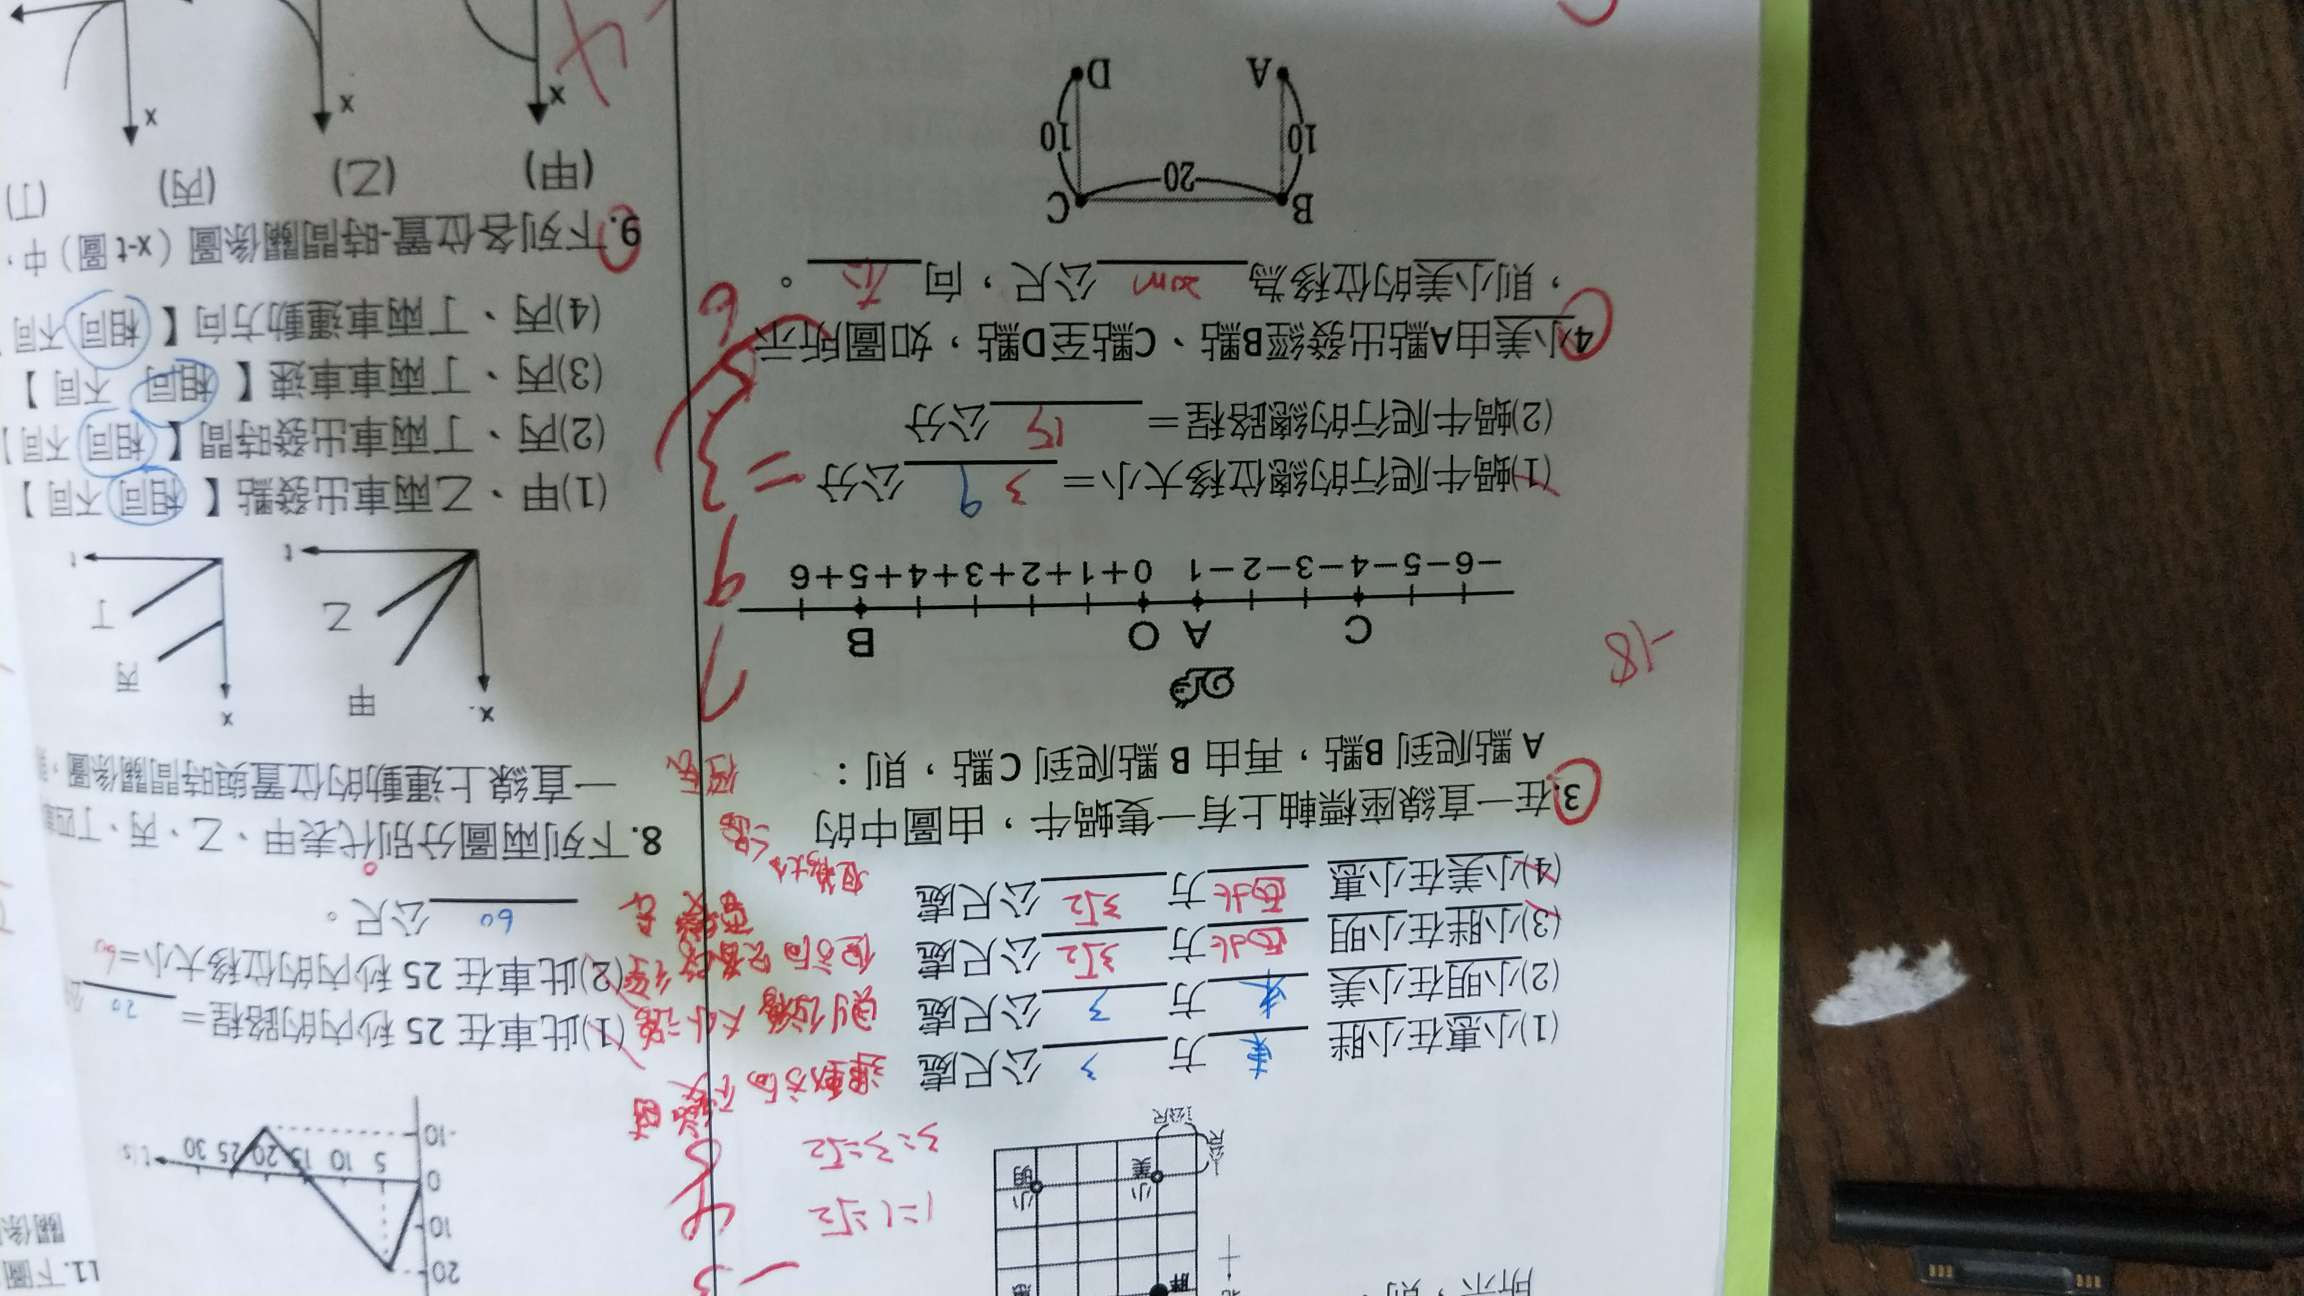 所示，則
北
胖
惠
小美
小明
1公尺
1公尺
1=1=√2
3=3=√2
(1)小惠在小胖 東 方 3 公尺處
(2)小明在小美 東 方 3 公尺處
(3)小胖在小明 西北 方 3√2 公尺處
(4)小美在小惠 方 3√2 公尺處
運動方向不改變時
位移大小
3.在一直線座標軸上有一隻蝸牛，由圖中的
A 點爬到 B點，再由 B 點爬到 C點，則：
C A O B
−6−5−4−3−2−1 0+1+2+3+4+5+6
(1)蝸牛爬行的總位移大小= 3 9 公分
(2)蝸牛爬行的總路程= 15 公分
4.小美由A點出發經B點、C點至D點，如圖所示
，則小美的位移為 20m 公尺，向 右 。
B 20 C
10 10
A D
-18
11.下圖
關係
20
10
0
-10
5 10 15 20 25 30 t(s)
(1)此車在 25 秒內的路程= 70
(2)此車在 25 秒內的位移大小= 60
60 公尺。
8.下列兩圖分別代表甲、乙、丙、丁四
一直線上運動的位置與時間關係圖，
x 甲 乙 t
x 丙 丁 t
(1)甲、乙兩車出發點【 相同 不同 】
(2)丙、丁兩車出發時間【 相同 不同 】
(3)丙、丁兩車車速【 相同 不同 】
(4)丙、丁兩車運動方向【 相同 不同 】
9.下列各位置-時間關係圖（x-t 圖）中，
(甲) (乙) (丙) (丁)
x x x